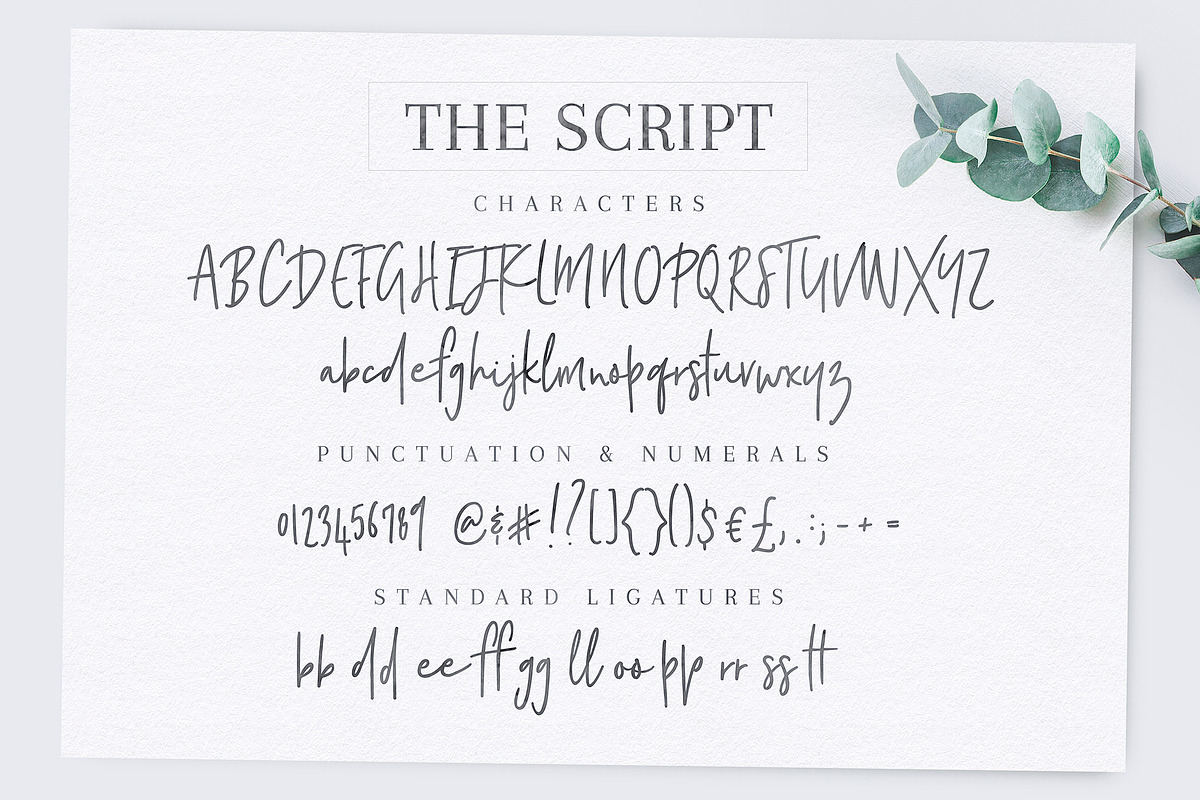 THE SCRIPT
CHARACTERS
ABCDEFGHIJKLMNOPQRSTUVWXYZ
abcdefghijklmnopqrstuvwxyz
PUNCTUATION & NUMERALS
0123456789 @&#!?[]{}()$€£,.:;-+=
STANDARD LIGATURES
bb dd ee ff gg ll oo pp rr ss tt